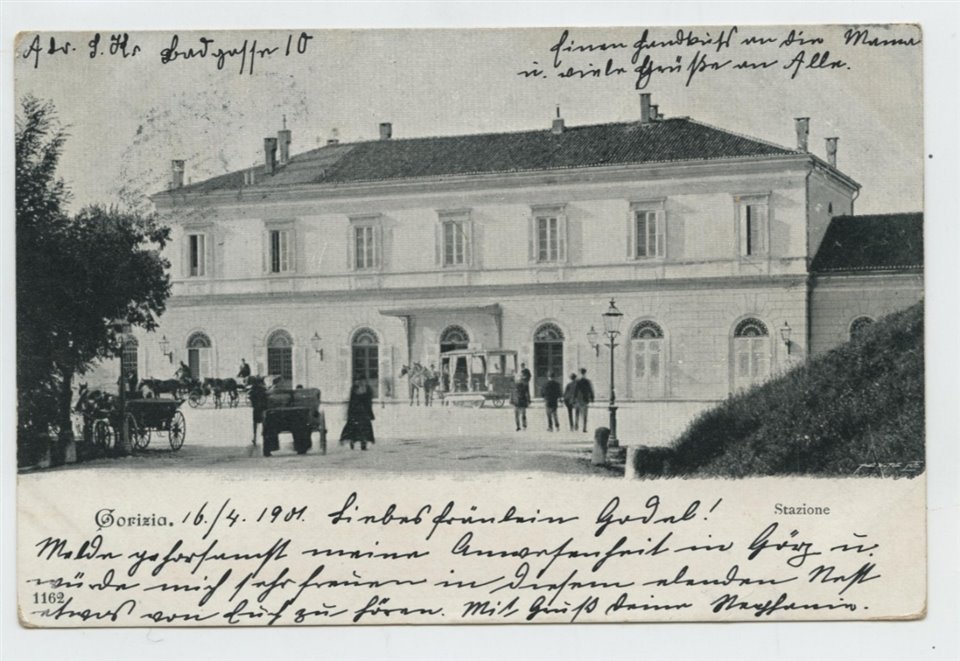 Adr. S. Kr Badgasse 10
Einen Handkuß an die Mama
u. viele Grüße an Alle.
Gorizia. 16./4. 1901. Liebes Fräulein Godel!
Stazione
Melde gehorsamst meine Anwesenheit in Görz u.
würde mich sehr freuen in diesem elenden Nest
1162
etwas von Euch zu hören. Mit Gruß deine Stephanie.